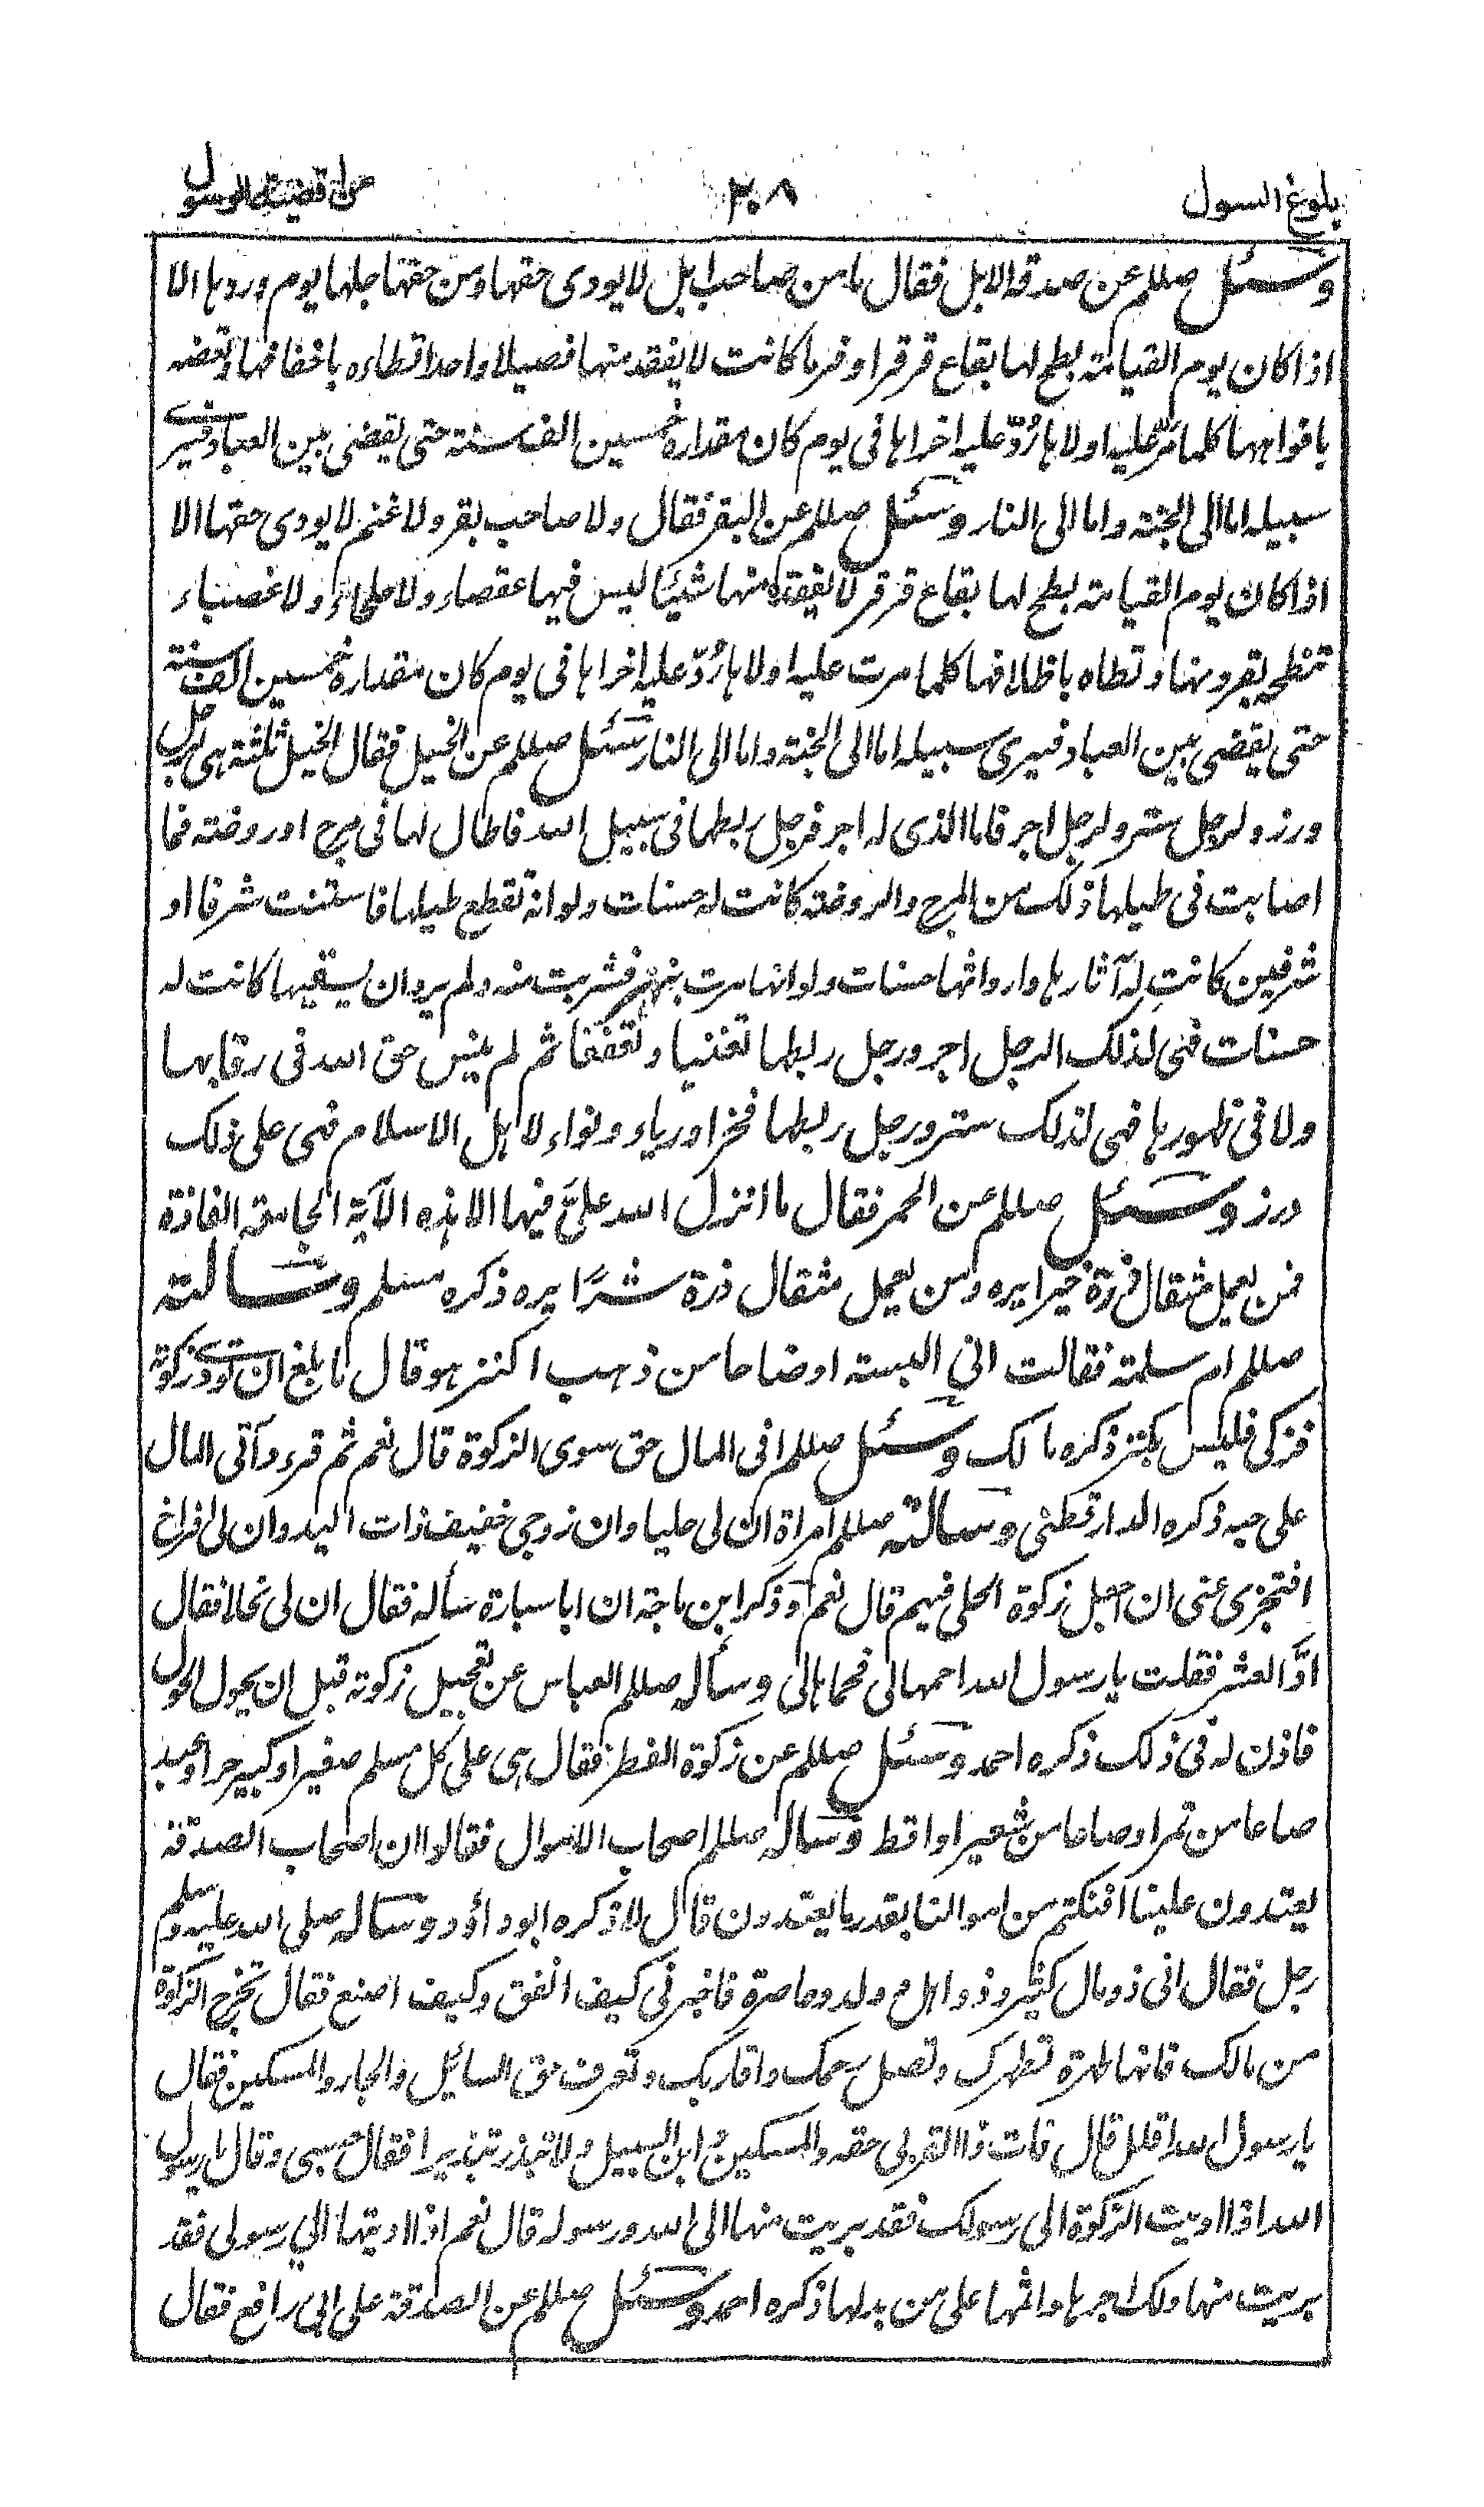 بلوغ السول ٣٠٨ من اقضية الرسول
وسئل صللم عن صدقة الابل فقال ما من صاحب ابل لا يودى حقها ومن حقها حلبها يوم وردها الا
اذا كان يوم القيامة بطح لها بقاع قرقر اوفر ما كانت لا يفقد منها فصيلا واحدا تطاءه باخفافها وتعضه
بافواهها كلما مرّ عليه اولاها رُدّ عليه اخراها فى يوم كان مقداره خمسين الف سنة حتى يقضى بين العباد فيرى
سبيله اما الى الجنة واما الى النار وسئل صللم عن البقر فقال ولا صاحب بقر ولا غنم لا يودى حقها الا
اذا كان يوم القيامة بطح لها بقاع قرقر لا يفقد منها شيئا ليس فيها عقصاء ولا جلحاء ولا عضباء
تنطحه بقرونها وتطاه باظلافها كلما مرت عليه اولاها رُدّ عليه اخراها فى يوم كان مقداره خمسين الف سنة
حتى يقضى بين العباد فيرى سبيله اما الى الجنة واما الى النار وسئل صللم عن الخيل فقال الخيل ثلثة هى لرجل
ورز ولرجل ستر ولرجل اجر فاما الذى له اجر فرجل ربطها فى سبيل الله فاطال لها فى مرج او روضة فما
اصابت فى طيلها ذلك من المرج والروضة كانت له حسنات ولو انه تقطع طيلها فاستنت شرفا او
شرفين كانت له آثارها وارواثها حسنات ولو انها مرت بنهر فشربت منه ولم يرد ان يسقيها كانت له
حسنات فهى لذلك الرجل اجر ورجل ربطها تغنيا وتعففا ثم لم ينس حق الله فى رقابها
ولا فى ظهورها فهى لذلك ستر ورجل ربطها فخرا ورياء ونواء لاهل الاسلام فهى على ذلك
ورز وسئل صللم عن الحمر فقال ما انزل الله علىّ فيها الا هذه الآية الجامعة الفاذة
فمن يعمل مثقال ذرة خيرا يره ومن يعمل مثقال ذرة شرًا يره ذكره مسلم وسالته
صللم ام سلمة فقالت انى البسته اوضاحا من ذهب اكنز هو قال ما بلغ ان تودى زكوته
فزكى فليس بكنز ذكره مالك وسئل صللم افى المال حق سوى الزكوة قال نعم ثم قرء وآتى المال
على حبه ذكره الدارقطنى وسالته صللم امراة ان لى حليا وان زوجى خفيف ذات اليد وان لى افراخ
افتجزى عنى ان اجعل زكوة الحلى فيهم قال نعم وذكر ابن ماجة ان ابا سيارة سأله فقال ان لى نحلا فقال
ادّ العشر فقلت يا رسول الله احمها لى فحماها لى وسأله صللم العباس عن تعجيل زكوته قبل ان يحول الحول
فاذن له فى ذلك ذكره احمد وسئل صللم عن زكوة الفطر فقال هى على كل مسلم صغير او كبير حر او عبد
صاعا من تمر او صاعا من شعير او اقط وساله صللم اصحاب الاموال فقالوا ان اصحاب الصدقة
يعتدون علينا افنكتم من اموالنا بقدر ما يعتدون قال لا ذكره ابوداؤد وساله صلى الله عليه وسلم
رجل فقال انى ذو مال كثير وذو اهل وولد وحاضرة فاخبرنى كيف انفق وكيف اصنع فقال تخرج الزكوة
من مالك فانها طهرة تطهرك وتصل رحمك واقاربك وتعرف حق السايل والجار والمسكين فقال
يا رسول الله اقلل قال فات ذا القربى حقه والمسكين وابن السبيل ولا تبذر تبذيرا فقال حسبى وقال يا رسول
الله اذا اديت الزكوة الى رسولك فقد بريت منها الى الله ورسوله قال نعم اذا اديتها الى رسولى فقد
بريت منها ولك اجرها واثمها على من بدلها ذكره احمد وسئل صللم عن الصدقة على ابى رافع فقال